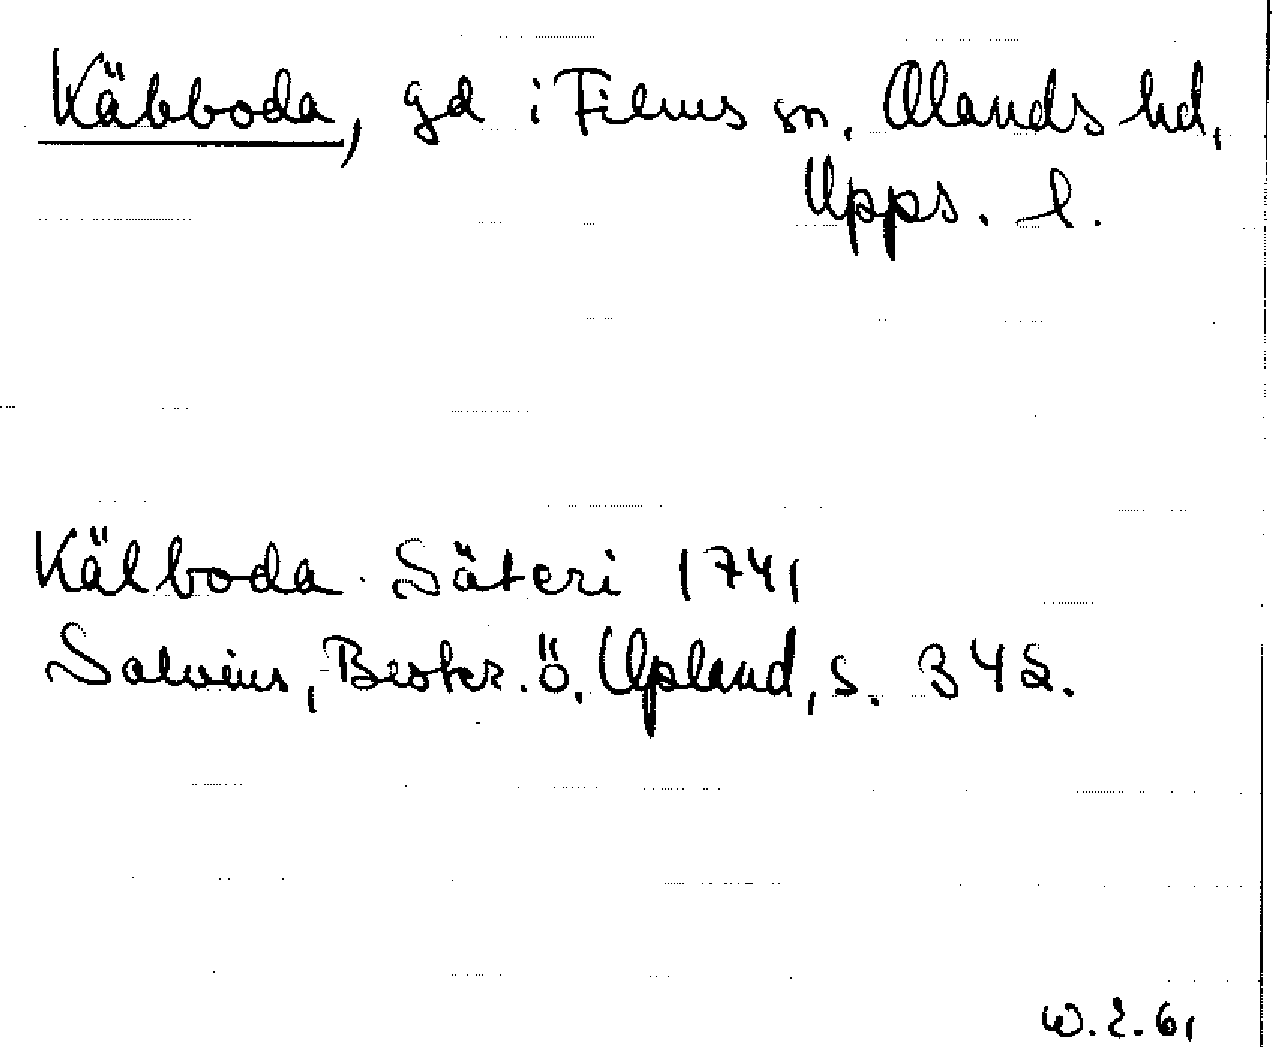 Käbboda, gd i Films sn. Olands hd,
Upps. l.
Kälboda Säteri 1741
Salvius, Beskr. ö. Upland, s. 342.
W.E.61